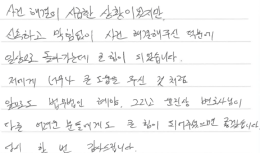 사건 해결이 시급한 상황이었지만,
신속하고 막힘없이 사건 해결해주신 덕분에
일상으로 돌아가는데 큰 힘이 되었습니다.
저에게 너무나 큰 도움을 주신 것 처럼
앞으로도 법무법인 해야, 그리고 변호사님이
다른 어려운 분들에게도 큰 힘이 되어주셨으면 좋겠습니다.
다시 한 번 감사드립니다.